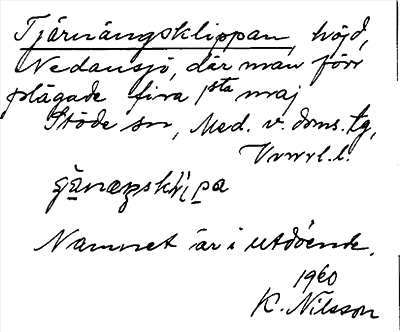 Tjärnängsklippan, höjd,
Nedansjö, där man förr
plägade fira 1sta maj
Stöde sn, Med. v. doms. tg,
Vnrrl. l.
Namnet är i utdöende.
1960
K. Nilsson